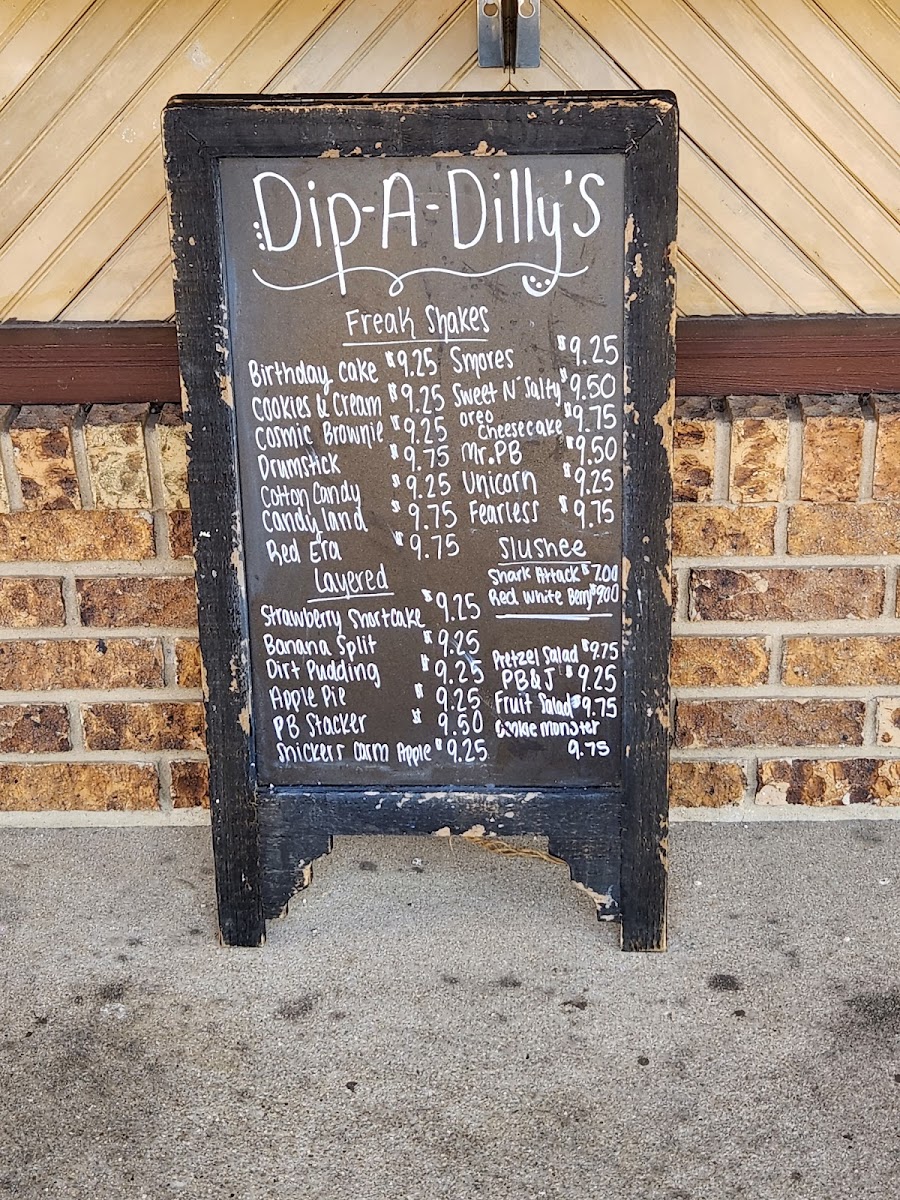 Dip-A-Dilly's
Freak Shakes
Birthday cake $9.25
Cookies & Cream $9.25
Cosmic Brownie $9.25
Drumstick $9.75
Cotton Candy $9.25
Candy land $9.75
Red Era $9.75
Smores $9.25
Sweet N' Salty $9.50
Oreo
Cheesecake $9.75
Mr. PB $9.50
Unicorn $9.25
Fearless $9.75
Slushee
Shark Attack $7.00
Red White Berry $9.00
Layered
Strawberry Shortcake $9.25
Banana Split $9.25
Dirt Pudding $9.25
Apple Pie $9.25
PB Stacker $9.50
Snickers Carm Apple $9.25
Pretzel Salad $9.75
PB&J $9.25
Fruit Salad $9.75
Cookie Monster
9.75